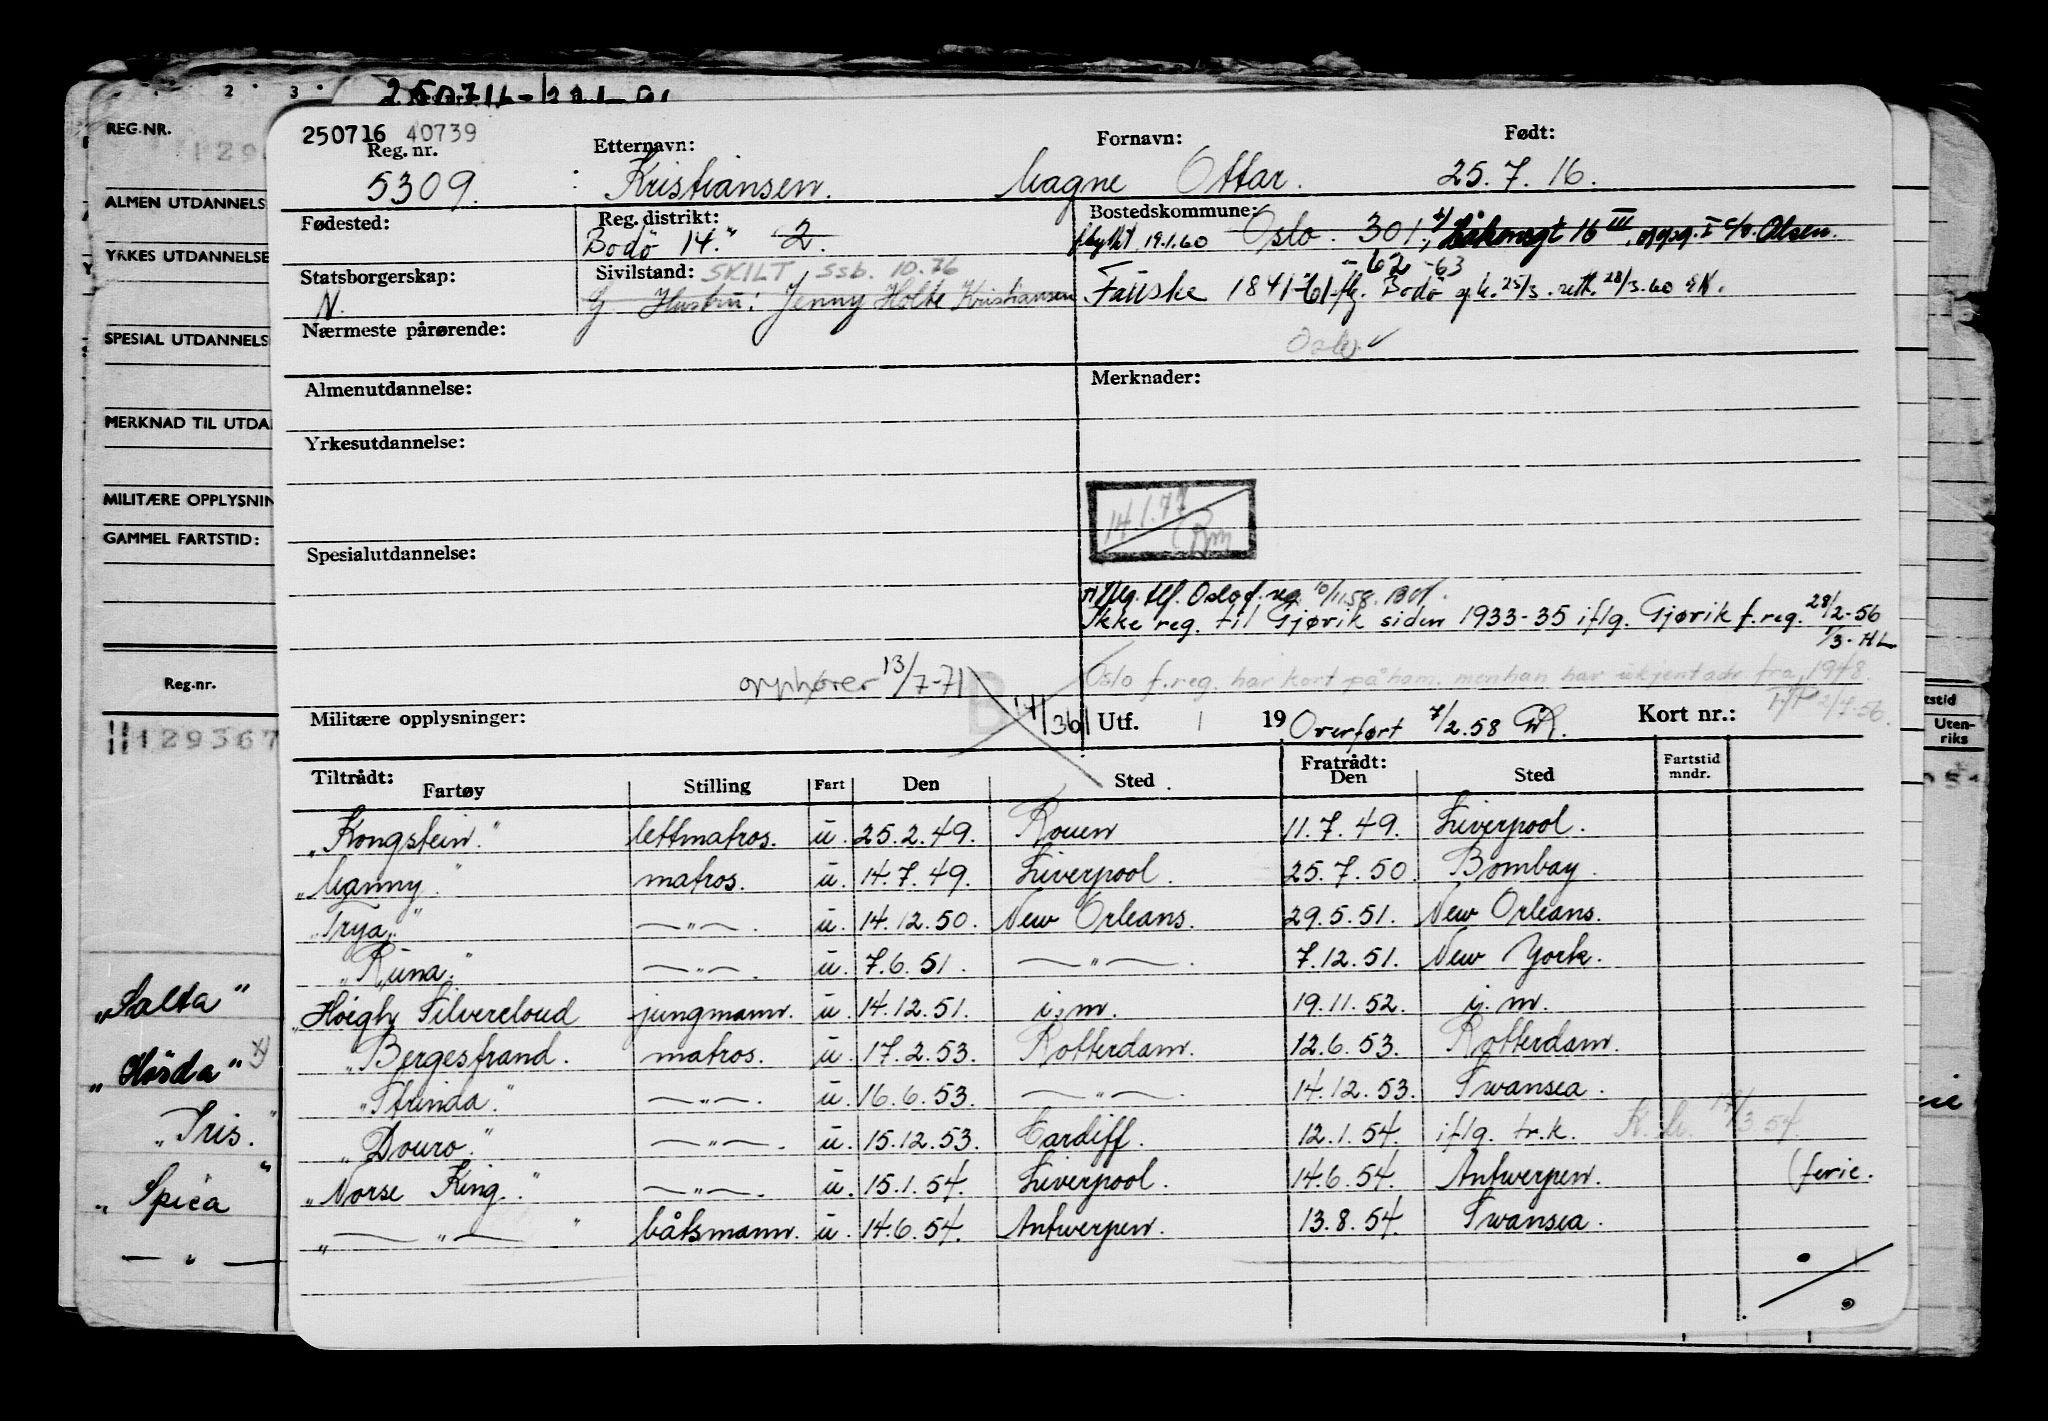 2 3
REG.NR.
ALMEN UTDANNELS
YRKES UTDANNELSE
SPESIAL UTDANNELS
MERKNAD TIL UTDA
MILITÆRE OPPLYSNIN
GAMMEL FARTSTID:
Reg.nr.
129367
„Salta"
„Hörda" x)
„Iris."
„Spica"
— „ —
250716 40739
Reg. nr. Etternavn: Fornavn: Født:
5309. Kristiansen. Magne Ottar. 25.7.16.
Fødested: Reg. distrikt: Bostedskommune:
Bodö 14." 2. flyttet 19.1.60 Oslo. 301, 16 III, oppg. I c/o. Olsen.
-62 -63
Statsborgerskap: Sivilstand: SKILT ssb. 10.76
N. G Hustru: Jenny Holte Kristiansen Fauske 1841-61 flg. Bodö 25/3. rett. 28/3-60
Nærmeste pårørende:
Oslo. ✓
Almenutdannelse: Merknader:
Yrkesutdannelse:
14.1.77
Spesialutdannelse:
iflg. tlf. Oslo f. reg. 10/11.58.
Ikke reg. til Gjøvik siden 1933-35 iflg. Gjøvik f.reg. 28/2-56
1/3-HL
opphører 13/7-71 B Oslo f.reg. har kort på ham. men han har ukjent adr fra 1948.
2/7-56.
Militære opplysninger: 14/361 Utf. 1 19 Overført 7/2.58 Kort nr.:
Tiltrådt: Fratrådt: Fartstid
Fartøy Stilling Fart Den Sted Den Sted mndr.
„Kongstein." lettmatros. u. 25.2.49. Rouen 11.7.49. Liverpool.
„Manny." matros. u. 14.7.49. Liverpool. 25.7.50. Bombay.
„Trya." —„— u. 14.12.50. New Orleans. 29.5.51. New Orleans.
„Runa." —„— u. 7.6.51. —„— 7.12.51. New York.
„Höegh Silvercloud jungmann. u. 14.12.51. i.m. 19.11.52. i.m.
„Bergestrand. matros. u. 17.2.53. Rotterdam. 12.6.53. Rotterdam.
„Strinda." —„— u. 16.6.53. —„— 14.12.53. Swansea.
„Douro." —„— u. 15.12.53. Cardiff. 12.1.54. iflg. tr.k. 17/3.54.
„Norse King." —„— u. 15.1.54. Liverpool. 14.6.54. Antwerpen. (ferie.
„— „ —" båtsmann. u. 14.6.54. Antwerpen. 13.8.54. Swansea.
./.
tstid
Uten-
riks